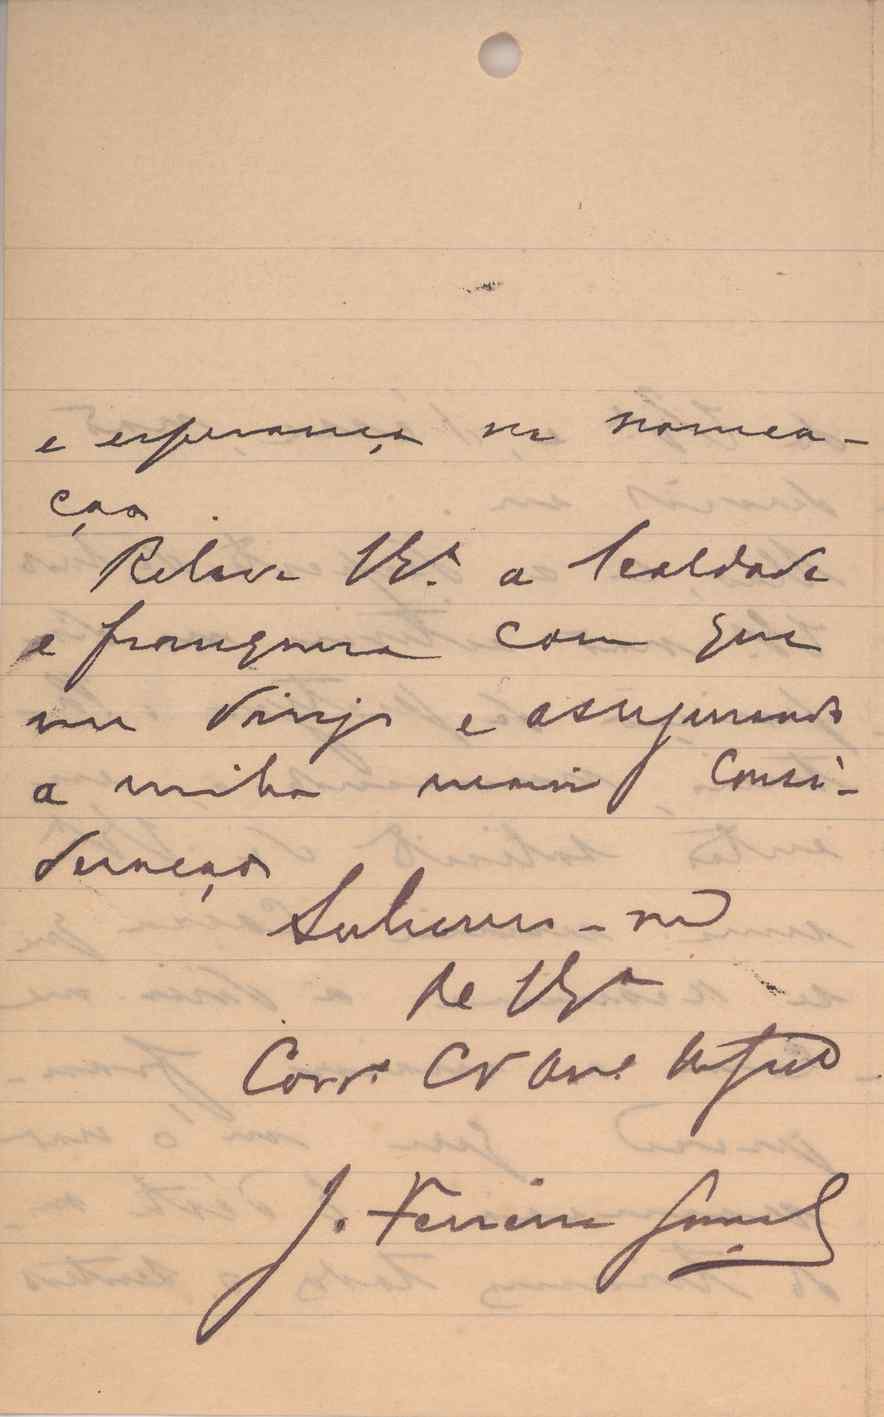 e esperança na nomea-
ção.
Releve V. Ex.ª a lealdade
e franqueza com que
me dirijo e assegurando
a minha maior consi-
deração
Subscrevo-me
de V. Ex.ª
Corr.º Cr.º
J. Ferreira Gomes